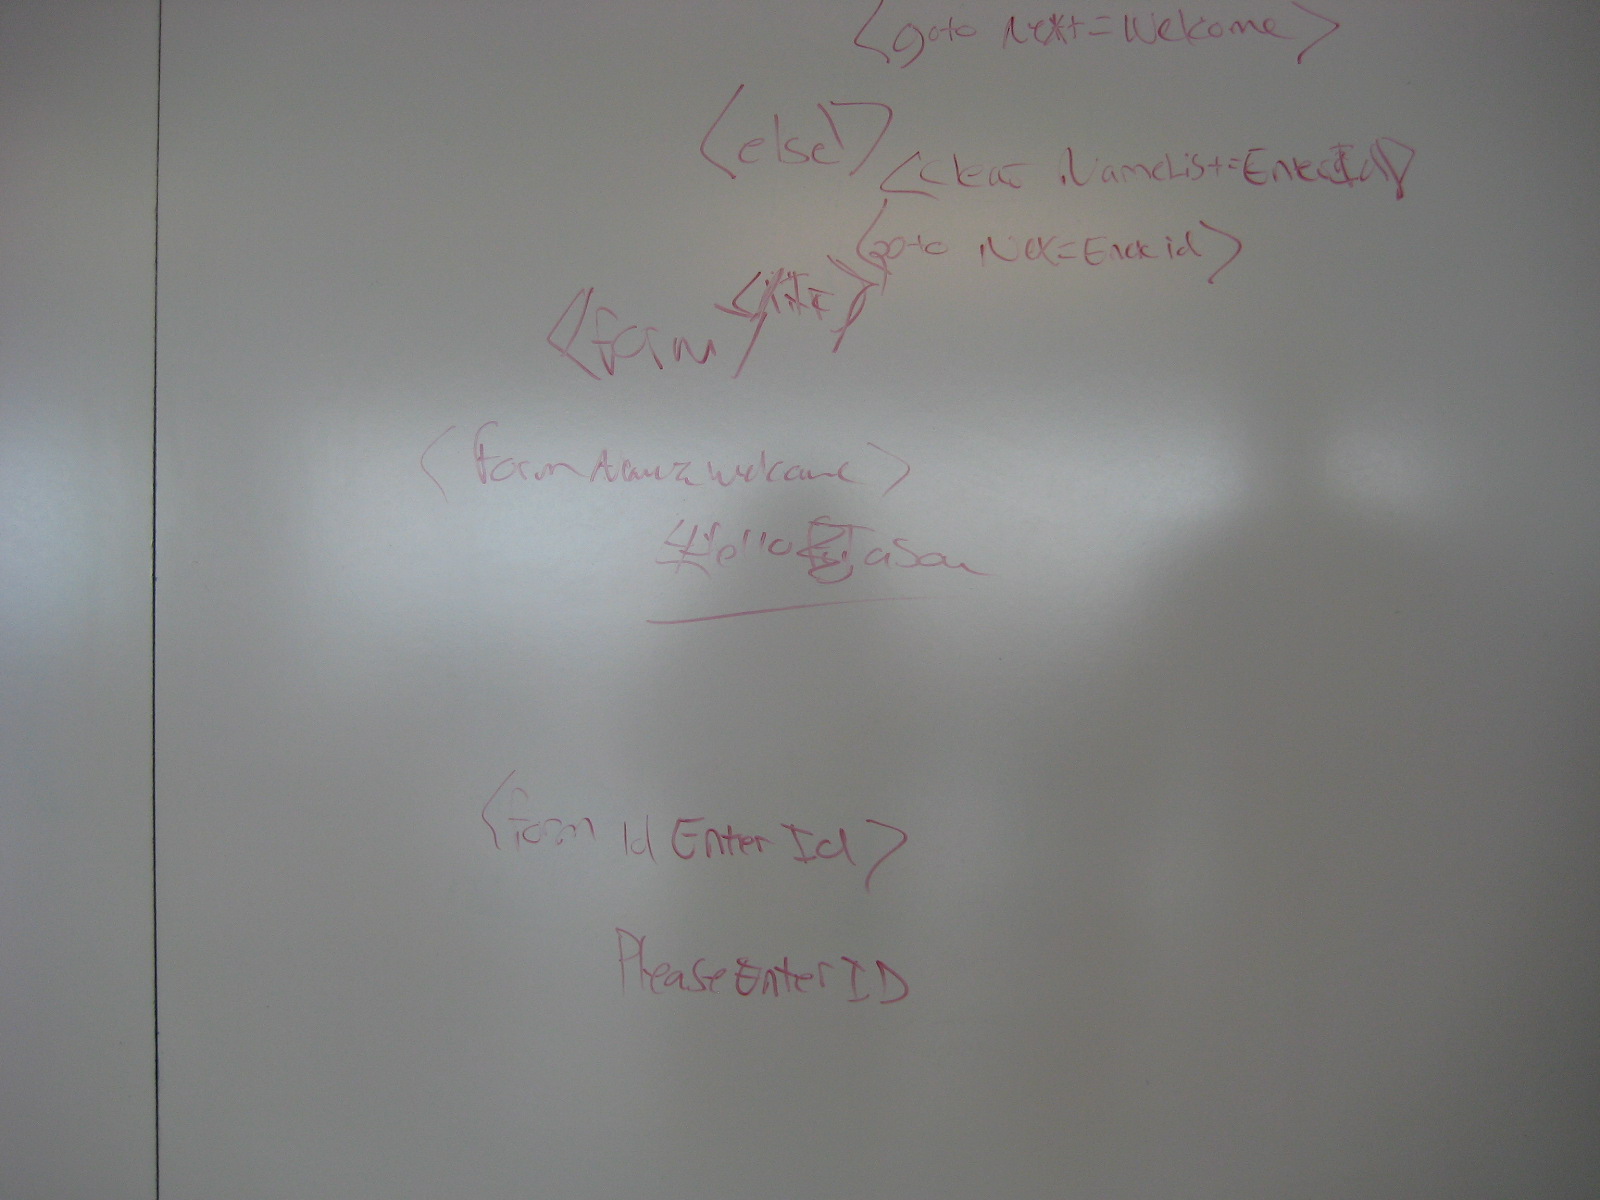 <goto Next=Welcome>
<else>
<clear NameList=EnterId>
<goto Nex=Enter id>
<form>
<form Name=welcome>
Hello Jason
<form id Enter Id>
Please Enter ID